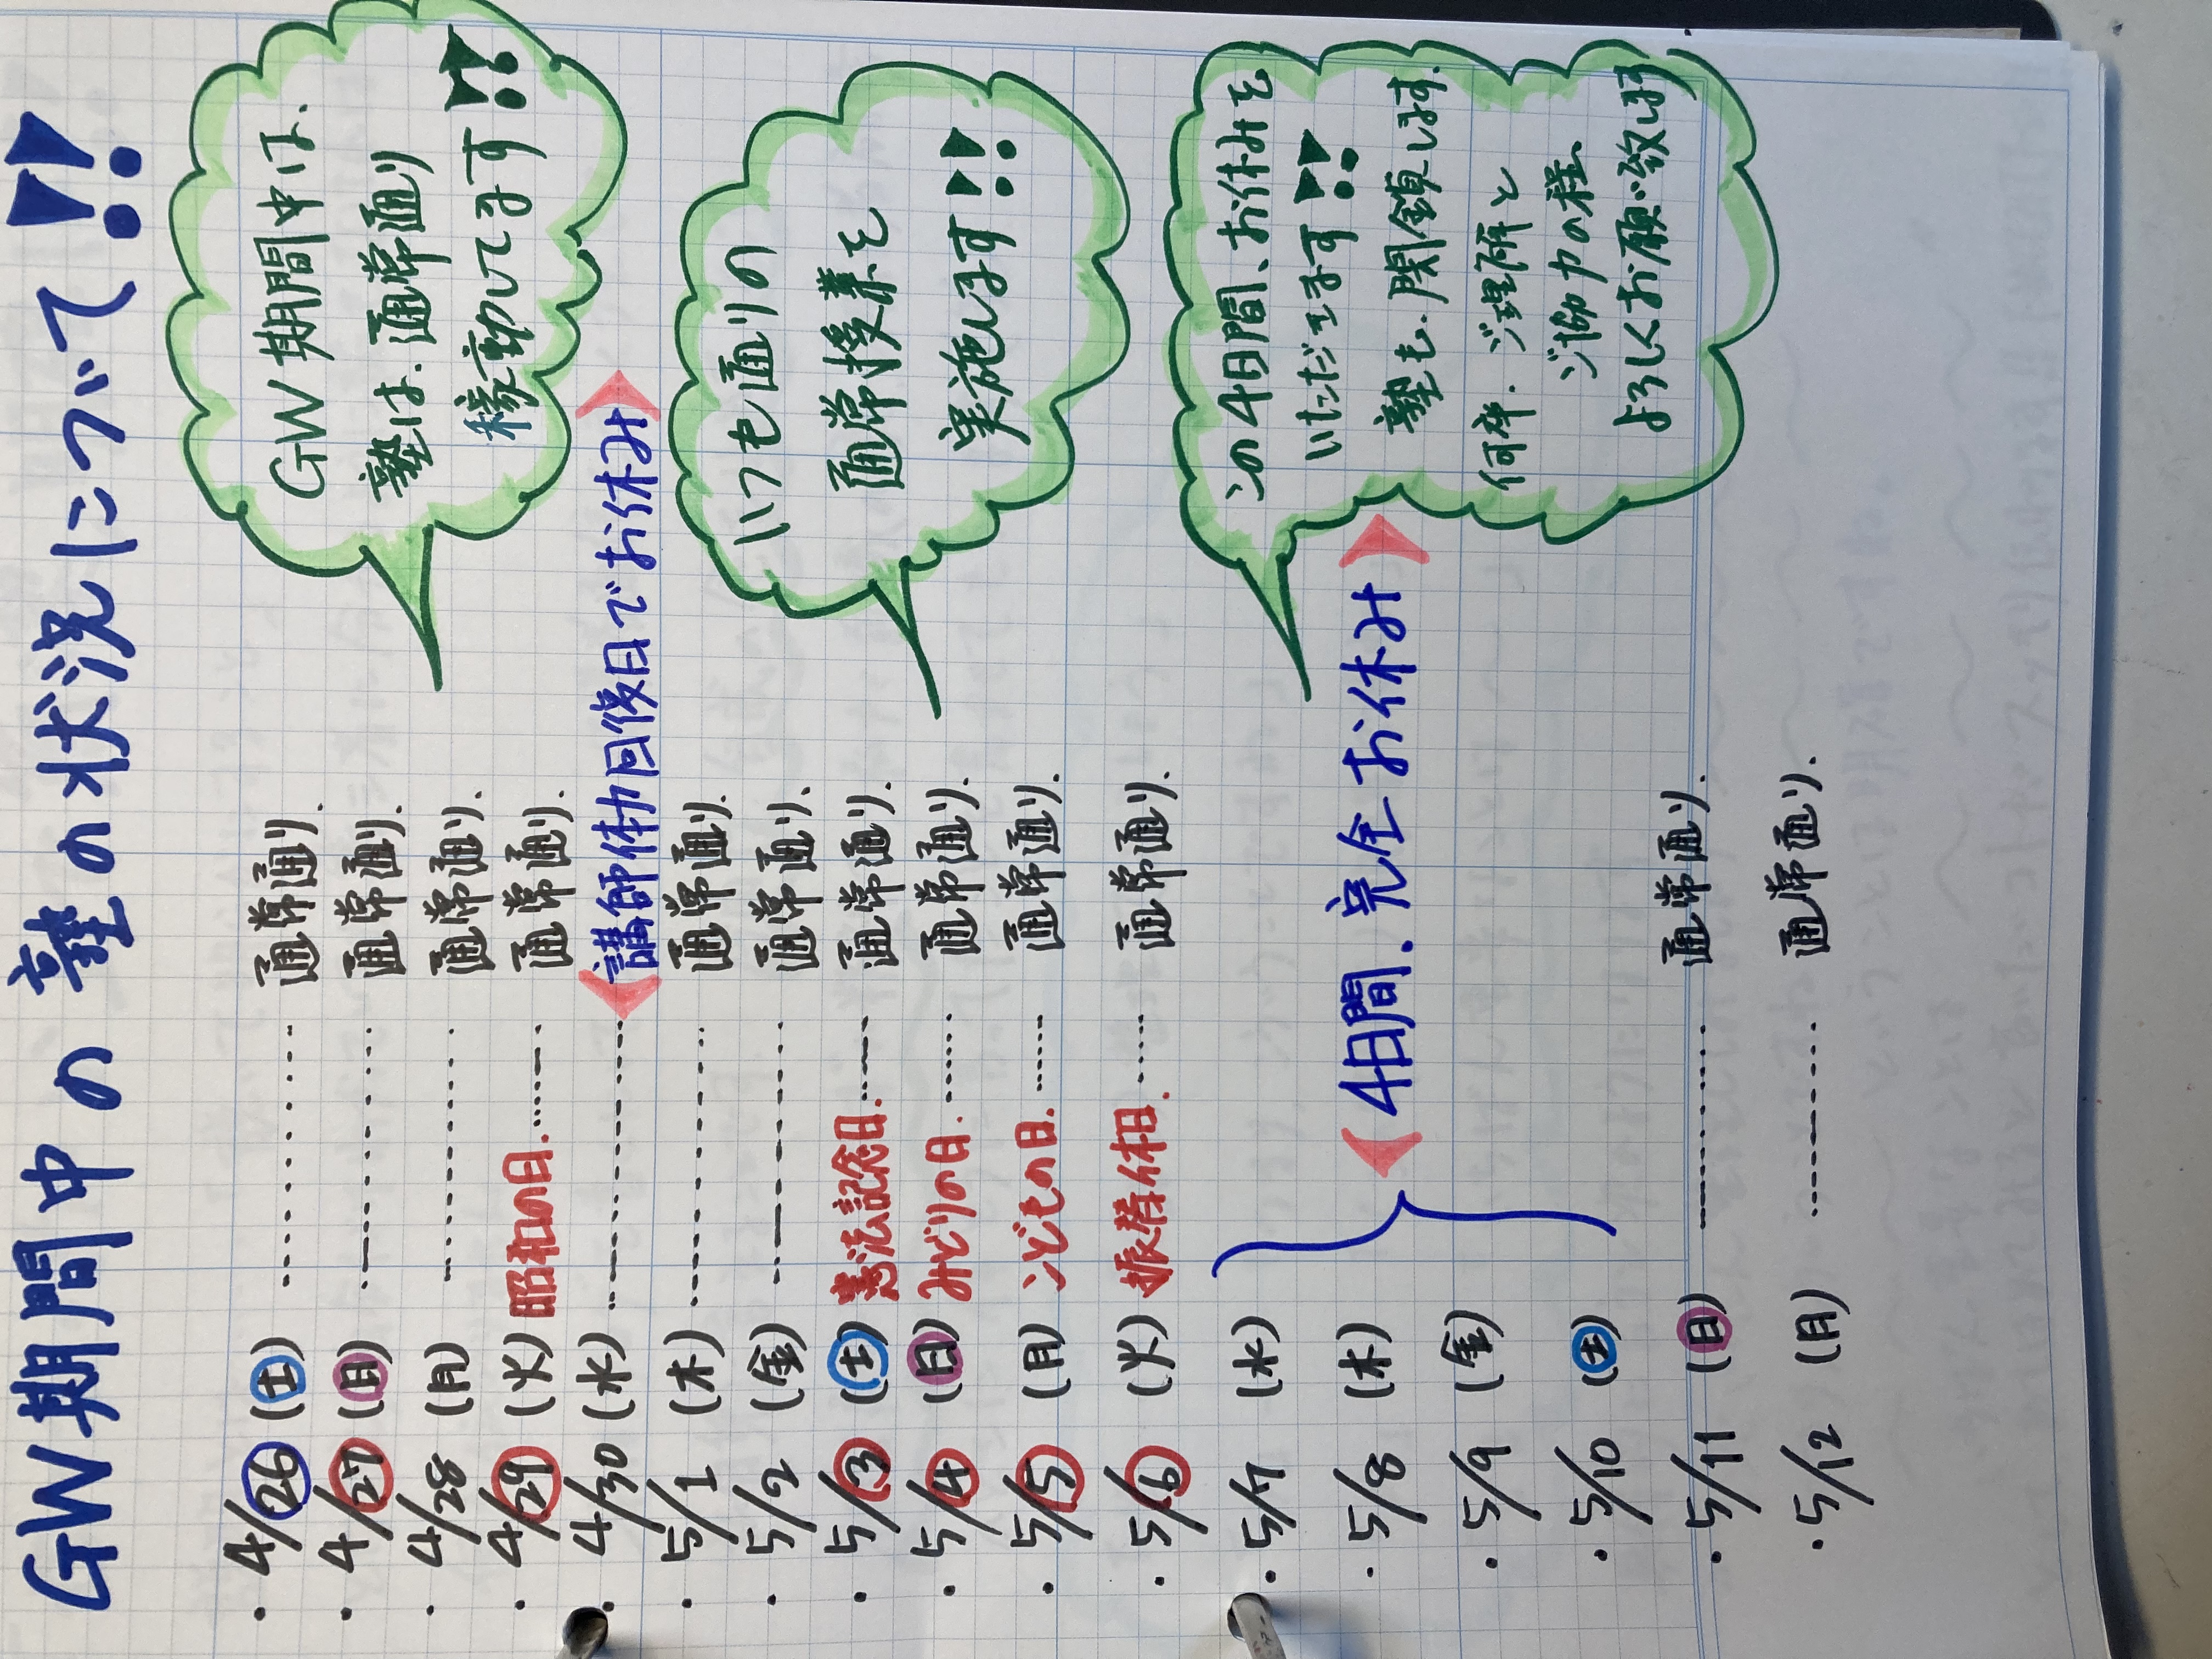 GW期間中の塾の状況について!!
・4/26(土)………通常通り.
・4/27(日)………通常通り.
・4/28(月)………通常通り.
・4/29(火)昭和の日.……通常通り.
・4/30(水)………講師体力回復日でお休み
・5/1(木)………通常通り.
・5/2(金)………通常通り.
・5/3(土)憲法記念日.……通常通り.
・5/4(日)みどりの日.……通常通り.
・5/5(月)こどもの日.……通常通り.
・5/6(火)振替休日.……通常通り.
・5/7(水)
・5/8(木)
4日間.完全お休み
・5/9(金)
・5/10(土)
・5/11(日)………通常通り.
・5/12(月)………通常通り.
GW期間中は、
塾は.通常通り
稼動してます!!
いつも通りの
通常授業を
実施します!!
この4日間、お休みを
いただきます!!
塾も.閉鎖します.
何卒.ご理解と
ご協力の程、
よろしくお願い致します